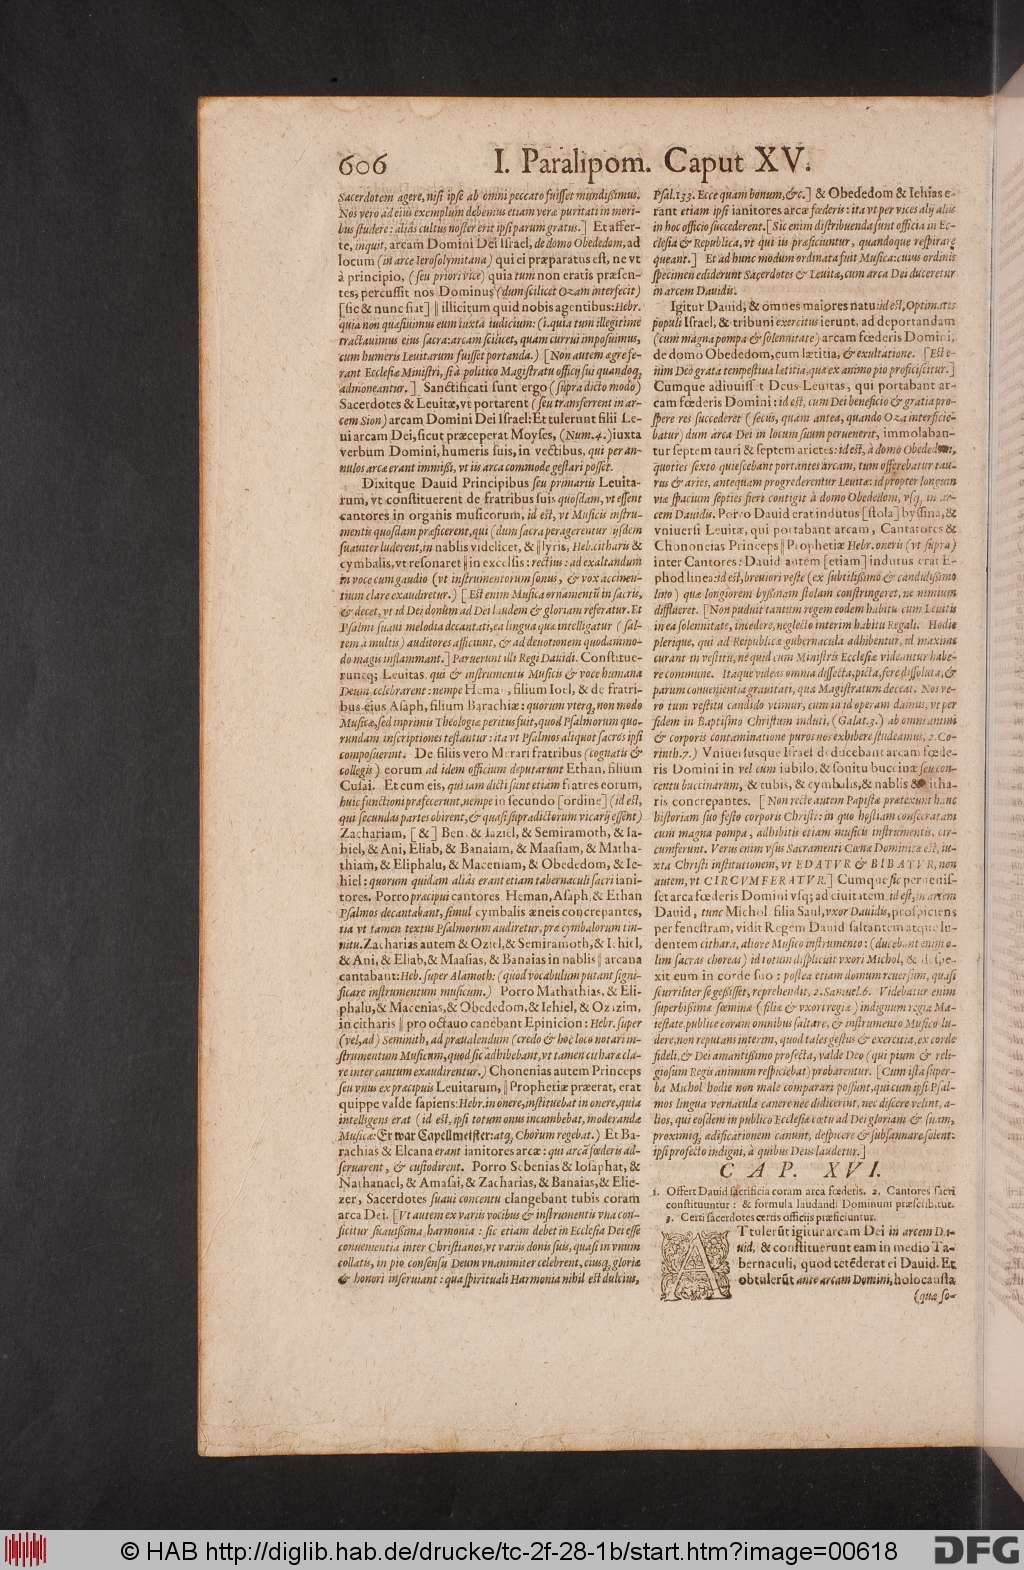 606
I. Paralipom. Caput XV.
Sacerdotem agere, nisi ipse ab omni peccato fuisset mundißimus.
Nos vero ad eius exemplum debemus etiam veræ puritati in mori-
bus studere: aliâs cultus noster erit ipsi parum gratus.] Et affer-
te, inquit, arcam Domini Dei Israel, de domo Obededom, ad
locum (in arce Ierosolymitana) qui ei præparatus est, ne vt
à principio, (seu priori vice) quia tum non eratis præsen-
tes, percussit nos Dominus (dum scilicet Ozam interfecit)
[sic & nunc fiat] ‖ illicitum quid nobis agentibus: Hebr.
quia non quæsiuimus eum iuxta iudicium: (i. quia tum illegitime
tractauimus eius sacra: arcam scilicet, quam currui imposuimus,
cum humeris Leuitarum fuisset portanda.) [Non autem ægre fe-
rant Ecclesiæ Ministri, si à politico Magistratu officij sui quandoq;
admoneantur.] Sanctificati sunt ergo (supra dicto modo)
Sacerdotes & Leuitæ, vt portarent (seu transferrent in ar-
cem Sion) arcam Domini Dei Israel: Et tulerunt filii Le-
ui arcam Dei, sicut præceperat Moyses, (Num. 4.) iuxta
verbum Domini, humeris suis, in vectibus, qui per an-
nulos arcæ erant immißi, vt iis arca commode gestari posset.
Dixitque Dauid Principibus seu primariis Leuita-
rum, vt constituerent de fratribus suis quosdam, vt essent
cantores in organis musicorum, id est, vt Musicis instru-
mentis quosdam præficerent, qui (dum sacra peragerentur) ijsdem
suauiter luderent, in nablis videlicet, & ‖ lyris, Heb. citharis &
cymbalis, vt resonaret ‖ in excelsis: rectius: ad exaltandum
in voce cum gaudio (vt instrumentorum sonus, & vox accinen-
tium clare exaudiretur.) [Est enim Musica ornamentũ in sacris,
& decet, vt id Dei donũm ad Dei laudem & gloriam referatur. Et
Psalmi suaui melodia decantati, ea lingua quæ intelligatur (sal-
tem à multis) auditores afficiunt, & ad deuotionem quodammo-
do magis inflammant.] Paruerunt illi Regi Dauidi. Constitue-
runtq; Leuitas, qui & instrumentis Musicis & voce humana
Deum celebrarent: nempe Heman, filium Ioel, & de fratri-
bus eius Asaph, filium Barachiæ: quorum vterq; non modo
Musicæ, sed inprimis Theologiæ peritus fuit, quod Psalmorum quo-
rundam inscriptiones testantur: ita vt Psalmos aliquot sacros ipsi
composuerint. De filiis vero Merari fratribus (cognatis &
collegis) eorum ad idem officium deputarunt Ethan, filium
Cusai. Et cum eis, qui iam dicti sunt etiam fratres eorum,
huic functioni præfecerunt, nempe in secundo [ordine] (id est,
qui secundas partes obirent, & quasi supradictorum vicarij essent)
Zachariam, [&] Ben, & Iaziel, & Semiramoth, & Ia-
hiel, & Ani, Eliab, & Banaiam, & Maasiam, & Matha-
thiam, & Eliphalu, & Maceniam, & Obededom, & Ie-
hiel: quorum quidam aliâs erant etiam tabernaculi sacri iani-
tores. Porro præcipui cantores Heman, Asaph, & Ethan
Psalmos decantabant, simul cymbalis æneis concrepantes,
ita vt tamen textus Psalmorum audiretur, præ cymbalorum tin-
nitu. Zacharias autem & Oziel, & Semiramoth, & Iahiel,
& Ani, & Eliab, & Maasias, & Banaias in nablis ‖ arcana
cantabant: Heb. super Alamoth: (quod vocabulum putant signi-
ficare instrumentum musicum.) Porro Mathathias, & Eli-
phalu, & Macenias, & Obededom, & Iehiel, & Ozazim,
in citharis ‖ pro octauo canebant Epinicion: Hebr. super
(vel, ad) Seminith, ad præualendum (credo & hoc loco notari in-
strumentum Musicum, quod sic adhibebant, vt tamen cithara cla-
re inter cantum exaudirentur.) Chonenias autem Princeps
seu vnus ex præcipuis Leuitarum, ‖ Prophetiæ præerat, erat
quippe valde sapiens: Hebr. in onere, instituebat in onere, quia
intelligens erat (id est, ipsi totum onus incumbebat, moderandæ
Musicæ: Er war Capellmeister: atq; Chorum regebat.) Et Ba-
rachias & Elcana erant ianitores arcæ: qui arcã fœderis ad-
seruarent, & custodirent. Porro Sebenias & Iosaphat, &
Nathanael, & Amasai, & Zacharias, & Banaias, & Elie-
zer, Sacerdotes suaui concentu clangebant tubis coram
arca Dei. [Vt autem ex variis vocibus & instrumentis vna con-
ficitur suauissima harmonia: sic etiam debet in Ecclesia Dei esse
conuenientia inter Christianos, vt variis donis suis, quasi in vnum
collatis, in pio consensu Deum vnanimiter celebrent, eiusq; gloriæ
& honori inseruiant: qua spirituali Harmonia nihil est dulcius,
Psal. 133. Ecce quam bonum, &c.] & Obededom & Iehias e-
rant etiam ipsi ianitores arcæ fœderis: ita vt per vices alij aliis
in hoc officio succederent. [Sic enim distribuenda sunt officia in Ec-
clesia & Republica, vt qui iis præficiuntur, quandoque respirare
queant.] Et ad hunc modum ordinata fuit Musica: cuius ordinis
specimen ediderunt Sacerdotes & Leuitæ, cum arca Dei duceretur
in arcem Dauidis.
Igitur Dauid, & omnes maiores natu: id est, Optimates
populi Israel, & tribuni exercitus ierunt, ad deportandam
(cum magna pompa & solennitate) arcam fœderis Domini,
de domo Obededom, cum lætitia, & exultatione. [Est e-
nim Deo grata tempestiua lætitia, quæ ex animo pio proficiscitur.]
Cumque adiuuisset Deus Leuitas, qui portabant ar-
cam fœderis Domini: id est, cum Dei beneficio & gratia pro-
spere res succederet (secus, quam antea, quando Oza interficie-
batur) dum arca Dei in locum suum peruenerit, immolaban-
tur septem tauri & septem arietes: id est, à domo Obededom,
quoties sexto quiescebant portantes arcam, tum offerebatur tau-
rus & aries, antequam progrederentur Leuitæ: id propter longum
viæ spacium septies fieri contigit à domo Obededom, vsq; in ar-
cem Dauidis. Porro Dauid erat indutus [stola] byssina, &
vniuersi Leuitæ, qui portabant arcam, Cantatores &
Chononeias Princeps ‖ Prophetiæ Hebr. oneris (vt supra)
inter Cantores: Dauid autem [etiam] indutus erat E-
phod linea: id est, breuiori veste (ex subtilissimo & candidißimo
lino) qua longiorem byßinam stolam constringeret, ne nimium
difflueret. [Non puduit tantum regem eodem habitu cum Leuitis
in ea solennitate, incedere, neglecto interim habitu Regali. Hodie
plerique, qui ad Reipublicæ gubernacula adhibentur, id maxime
curant in vestitu, ne quid cum Ministris Ecclesiæ videantur habe-
re commune. Itaque videas omnia dissecta, picta, fere dissoluta, &
parum conuenientia grauitati, quæ Magistratum deceat. Nos ve-
ro tum vestitu candido vtimur, cum in id operam damus, vt per
fidem in Baptismo Christum induti, (Galat. 3.) ab omni animi
& corporis contaminatione puros nos exhibere studeamus, 2. Co-
rinth. 7.) Vniuersusque Israel deducebant arcam fœde-
ris Domini in vel cum iubilo, & sonitu buccinæ seu con-
centu buccinarum, & tubis, & cymbalis, & nablis & citha-
ris concrepantes. [Non recte autem Papistæ prætexunt hanc
historiam suo festo corporis Christi: in quo hostiam consecratam
cum magna pompa, adhibitis etiam musicis instrumentis, cir-
cumferunt. Verus enim vsus Sacramenti Cœnæ Dominicæ est, iu-
xta Christi institutionem, vt EDATVR & BIBATVR, non
autem, vt CIRCVMFERATVR.] Cumque sic peruenis-
set arca fœderis Domini vsq; ad ciuitatem, id est, in arcem
Dauid, tunc Michol filia Saul, vxor Dauidis, prospiciens
per fenestram, vidit Regem Dauid saltantem atque lu-
dentem cithara, alióve Musico instrumento: (ducebant enim o-
lim sacras choreas) id totum displicuit vxori Michol, & despe-
xit eum in corde suo: postea etiam domum reuersum, quasi
scurriliter se geßisset, reprehendit, 2. Samuel. 6. Videbatur enim
superbißimæ fœminæ (filiæ & vxori regiæ) indignum regia Ma-
iestate, publice coram omnibus saltare, & instrumento Musico lu-
dere, non reputans interim, quod tales gestus & exercitia, ex corde
fideli, & Dei amantißimo profecta, valde Deo (qui pium & reli-
giosum Regis animum respiciebat) probarentur. [Cum ista super-
ba Michol hodie non male comparari possunt, qui cum ipsi Psal-
mos lingua vernacula canere nec didicerint, nec discere velint, a-
lios, qui eosdem in publico Ecclesiæ cœtu ad Dei gloriam & suam,
proximiq; ædificationem canunt, despicere & subsannare solent:
ipsi profecto indigni, à quibus Deus laudetur.]
CAP. XVI.
1. Offert Dauid sacrificia coram arca fœderis. 2. Cantores sacri
constituuntur: & formula laudandi Dominum præscribitur.
3. Certi sacerdotes certis officiis præficiuntur.
ATtulerũt igitur arcam Dei in arcem Da-
uid, & constituerunt eam in medio Ta-
bernaculi, quod tetẽderat ei Dauid. Et
obtulerũt ante arcam Domini, holocausta
(quæ so-
© HAB http://diglib.hab.de/drucke/tc-2f-28-1b/start.htm?image=00618
DFG